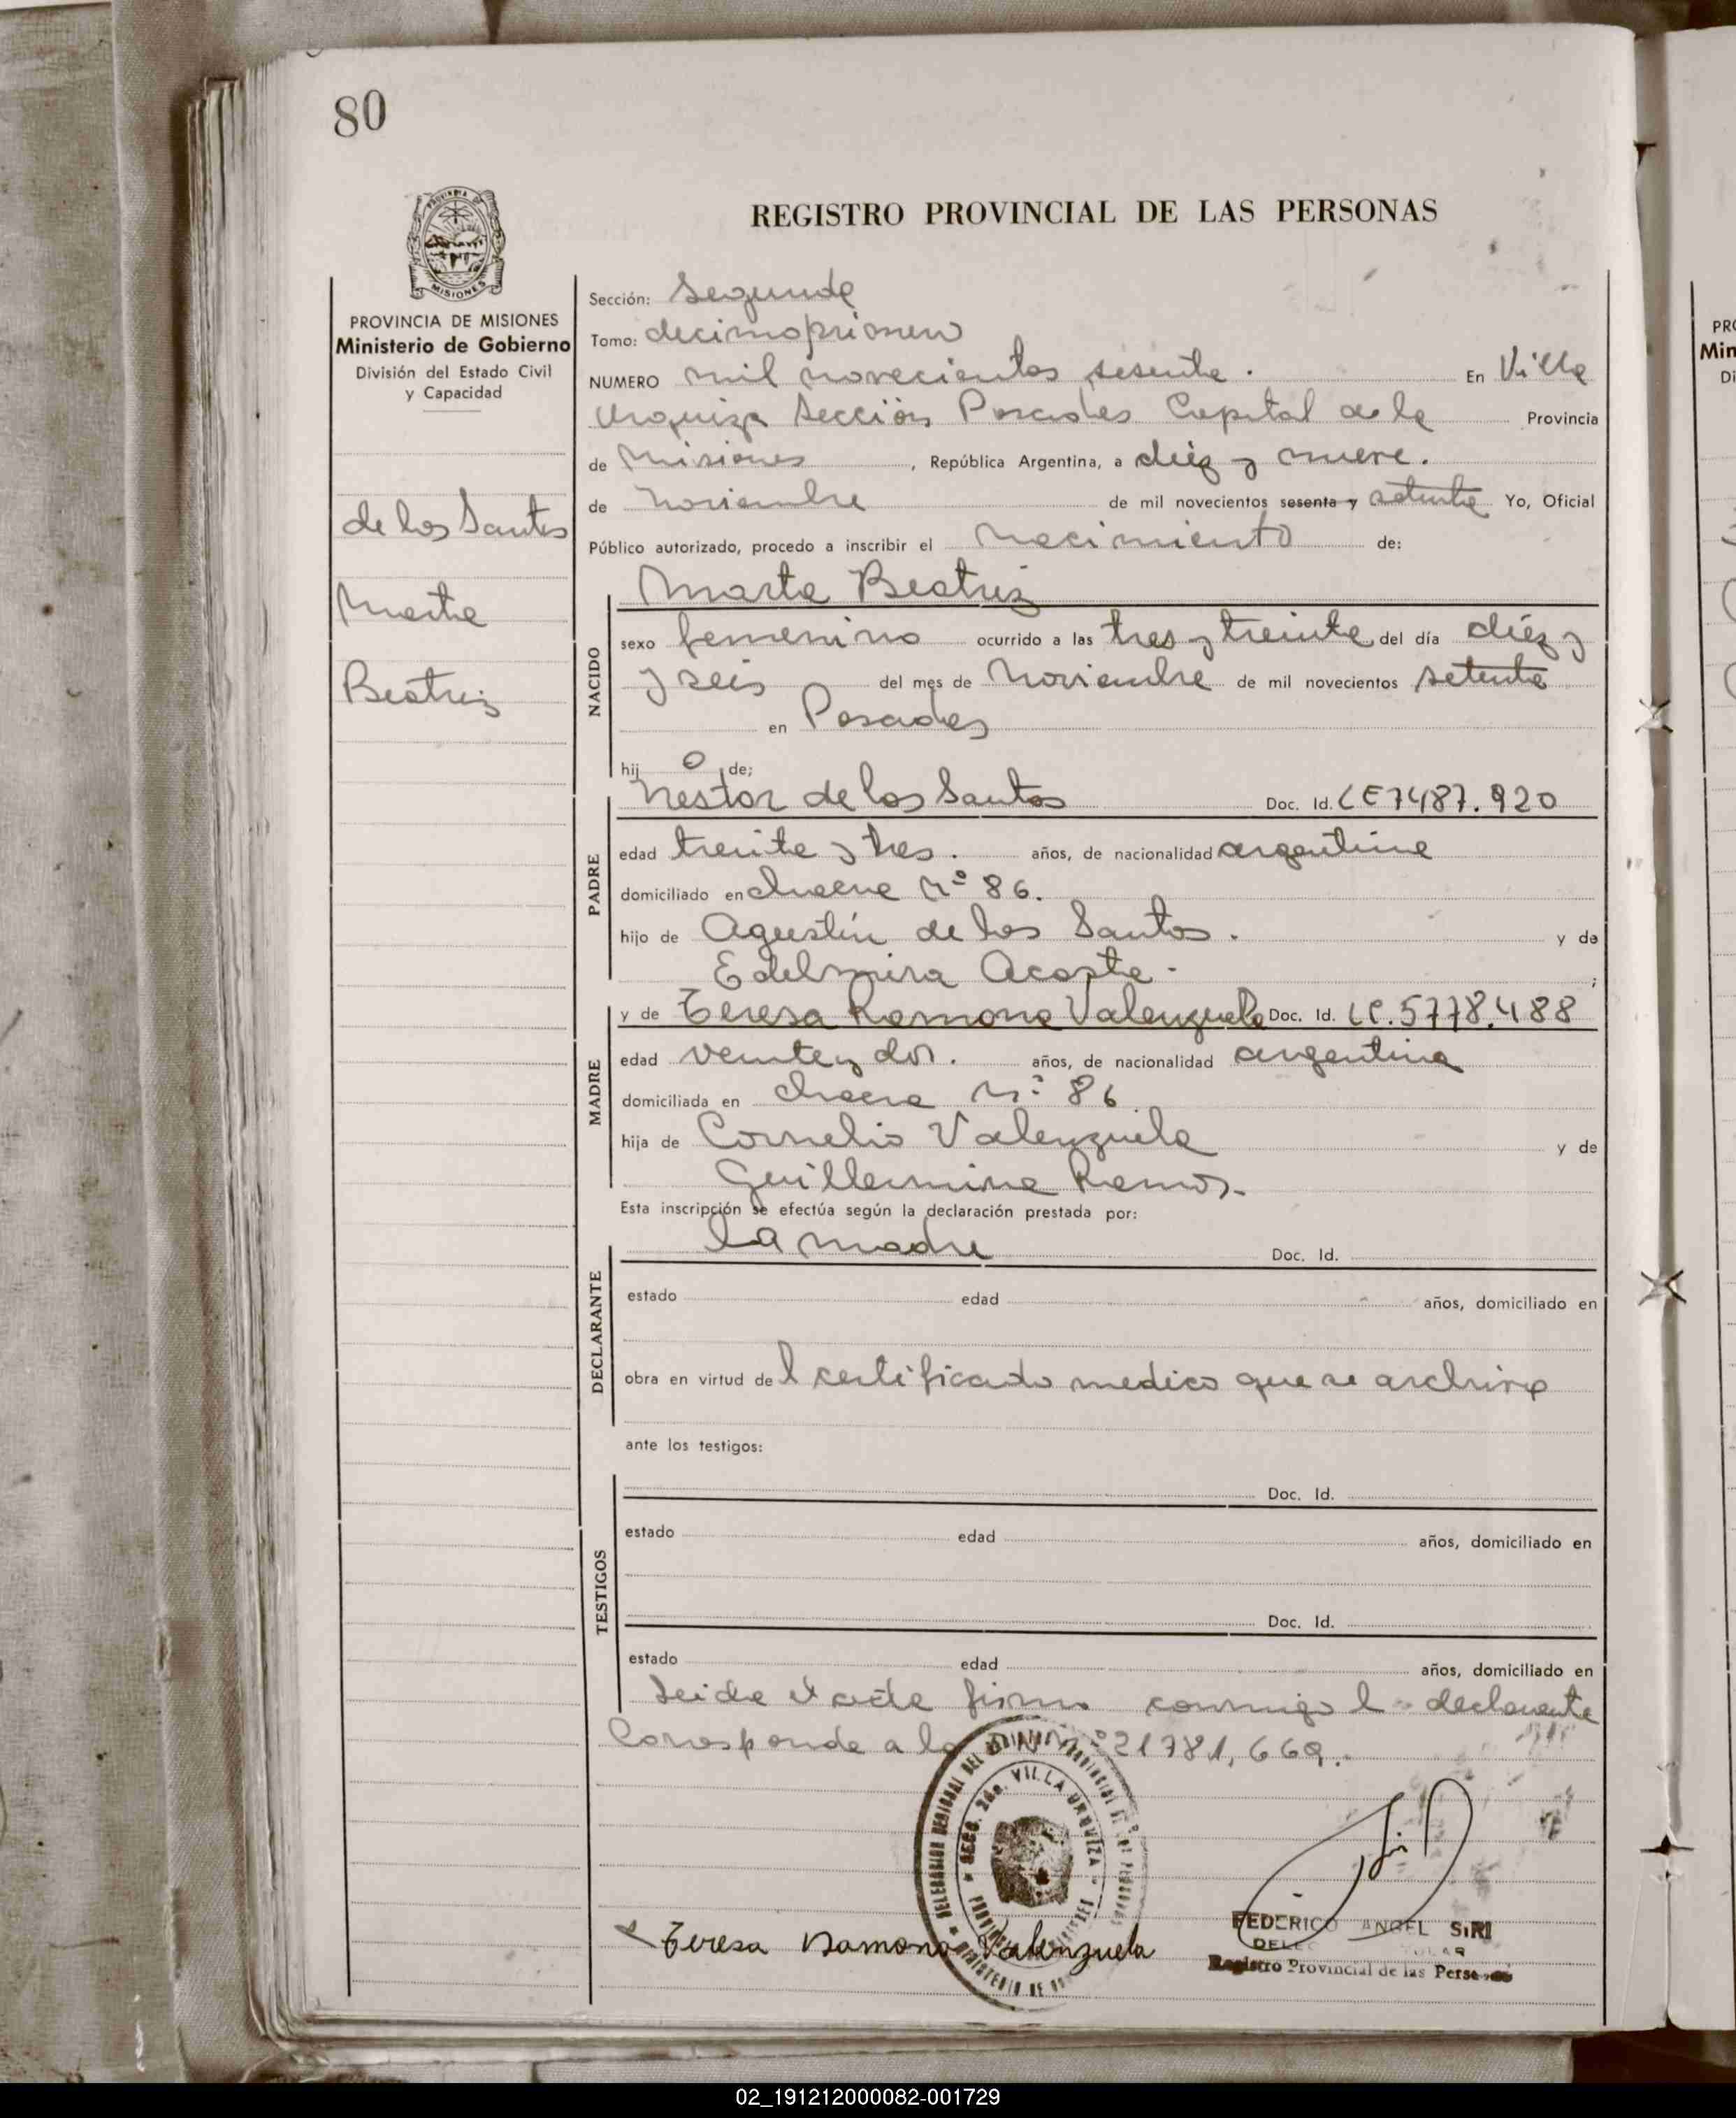 80
REGISTRO PROVINCIAL DE LAS PERSONAS
PROVINCIA DE MISIONES
Ministerio de Gobierno
División del Estado Civil
y Capacidad
de los Santos
Marta
Beatriz
Sección: Segunda
Tomo: decimoprimero
NUMERO mil novecientos sesenta. En Villa
Urquiza Sección Posadas Capital de la Provincia
de Misiones, República Argentina, a diéz y nueve.
de Noviembre de mil novecientos sesenta y setenta Yo, Oficial
Público autorizado, procedo a inscribir el Nacimiento de:
Marta Beatriz
NACIDO
sexo femenino ocurrido a las tres y treinta del día diéz y
y seis del mes de Noviembre de mil novecientos setenta
en Posadas
hij o de;
Nestor de los Santos Doc. Id. LE 7487.920
PADRE
edad treinta y tres. años, de nacionalidad argentina
domiciliado en chacra Nº 86.
hijo de Agustín de los Santos. y de
Edelmira Acosta. ;
y de Teresa Ramona Valenzuela Doc. Id. LC.5778.488
MADRE
edad veinte y dos. años, de nacionalidad argentina
domiciliada en chacra Nº 86
hija de Cornelio Valenzuela y de
Guillermina Ramos.
Esta inscripción se efectúa según la declaración prestada por:
la madre Doc. Id.
DECLARANTE
estado edad años, domiciliado en
obra en virtud de l certificado medico que se archiva
ante los testigos:
Doc. Id.
TESTIGOS
estado edad años, domiciliado en
Doc. Id.
estado edad años, domiciliado en
Leida el acta firma conmigo l declarante
Corresponde a la Nº 21781,669.
SECC. 2da. VILLA URQUIZA
Teresa Ramona Valenzuela
FEDERICO ANGEL SIRI
Registro Provincial de las Personas
PRO
Min
Di
02_191212000082-001729